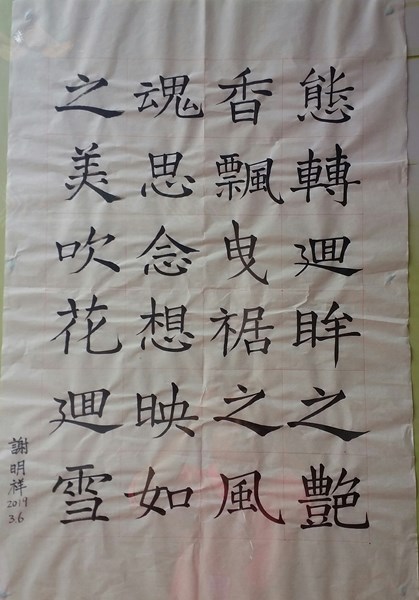 態轉迴眸之艷
香飄曳裾之風
魂思念想映如
之美吹花迴雪
謝明祥
2014
3.6